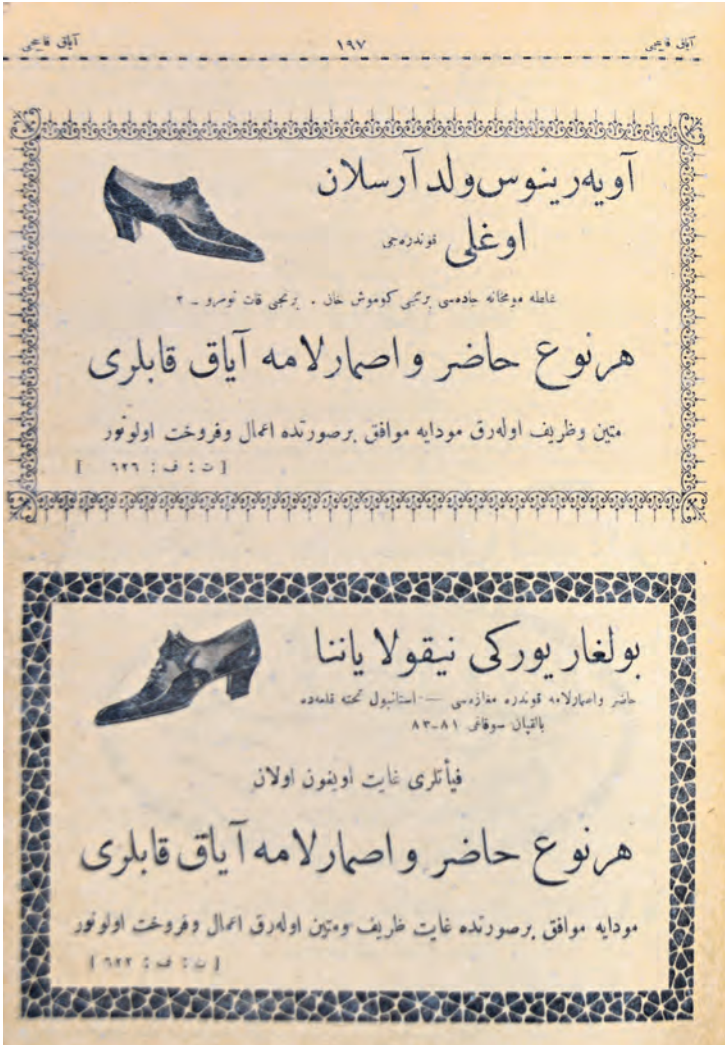 آياق قابجى ١٩٧ آياق قابجى
آويه‌رينوس ولد آرسلان
اوغلى قوندره‌جى
غلطه مومخانه جاده‌سى برنجى كوموش خان . برنجى قات نومرو ـ ٢
هر نوع حاضر و اصمارلامه آياق قابلرى
متين وظريف اوله‌رق مودايه موافق برصورتده اعمال وفروخت اولونور
[ ت : ف : ٦٢٦ ]
بولغار يوركى نيقولا ياننا
حاضر واصمارلامه قوندره مغازه‌سى — استانبول تخته قلعه‌ده
بالقپان سوقاغى ٨١-٨٣
فيأتلرى غايت اويغون اولان
هر نوع حاضر و اصمارلامه آياق قابلرى
مودايه موافق برصورتده غايت ظريف ومتين اوله‌رق اعمال وفروخت اولونور
[ ت : ف : ٦٢٢ ]